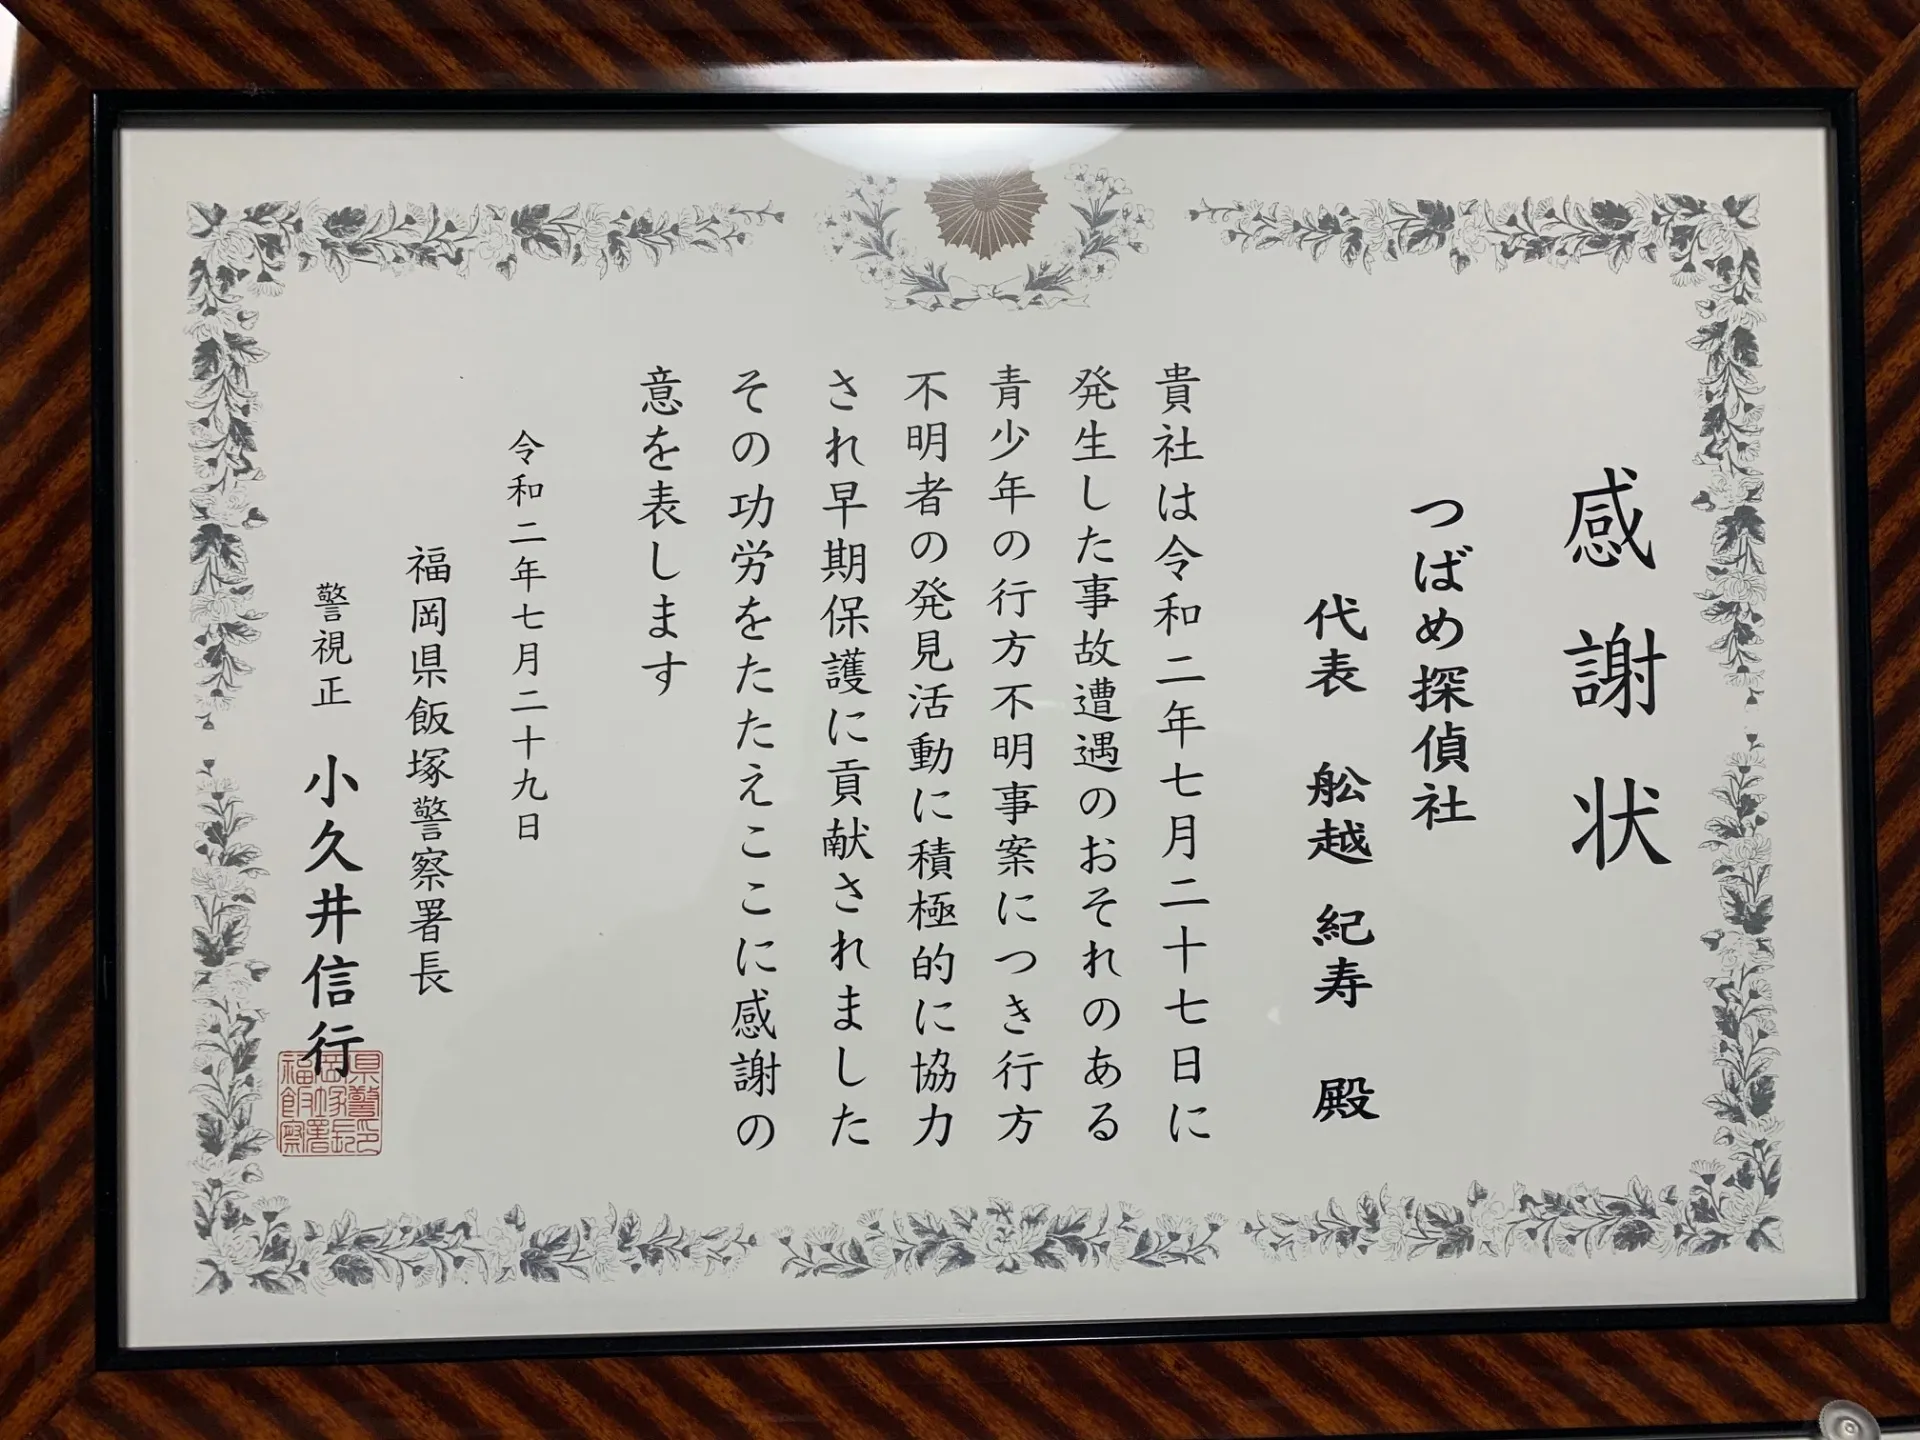 感謝状
つばめ探偵社
代表 舩越 紀寿 殿
貴社は令和二年七月二十七日に
発生した事故遭遇のおそれのある
青少年の行方不明事案につき行方
不明者の発見活動に積極的に協力
され早期保護に貢献されました
その功労をたたえここに感謝の
意を表します
令和二年七月二十九日
福岡県飯塚警察署長
警視正 小久井信行
福岡県飯塚警察署長印